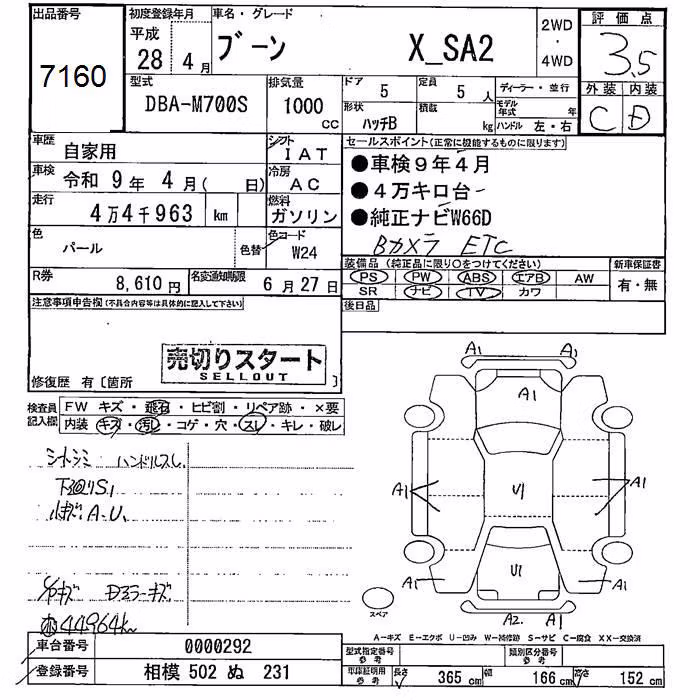 出品番号
7160
初度登録年月
平成
28 4月
車名・グレード
ブーン X_SA2
2WD
・
4WD
評価点
3.5
外装 内装
C D
型式
DBA-M700S
排気量
1000
cc
ドア
5
定員
5 人
形状
ハッチB
積載
kg
ディーラー・並行
モデル年式 年
ハンドル 左・右
車歴
自家用
シフト
IAT
車検
令和 9年 4月( 日)
冷房
AC
走行
4万4千963 km
燃料
ガソリン
色
パール
色替
色コード
W24
R券
8,610円
名変通知期限
6月27日
セールスポイント(正常に機能するものに限ります)
●車検9年4月
●4万キロ台
●純正ナビW66D
Bカメラ ETC
装備品(純正品に限り○をつけてください)
PS PW ABS エアB AW
SR ナビ TV カワ
新車保証書
有・無
後日品
注意事項申告欄(不具合内容等は具体的に記入して下さい)
売切りスタート
SELLOUT
修復歴 有〔箇所 〕
検査員記入欄
FW キズ・飛石・ヒビ割・リペア跡・×要
内装 キズ・汚レ・コゲ・穴・スレ・キレ・破レ
シートシミ ハンドルスレ
下廻りS1
A.U.
Dミラーキズ
44964km
A1 A1
A1
A1 U1 A1
U1
A1 A1
A2 A1
スペア
A-キズ E-エクボ U-凹み W-補修跡 S-サビ C-腐食 XX-交換済
車台番号
0000292
登録番号
相模 502 ぬ 231
型式指定番号
参考
類別区分番号
参考
車庫証明用
参考
長さ 365 cm 幅 166 cm 高さ 152 cm